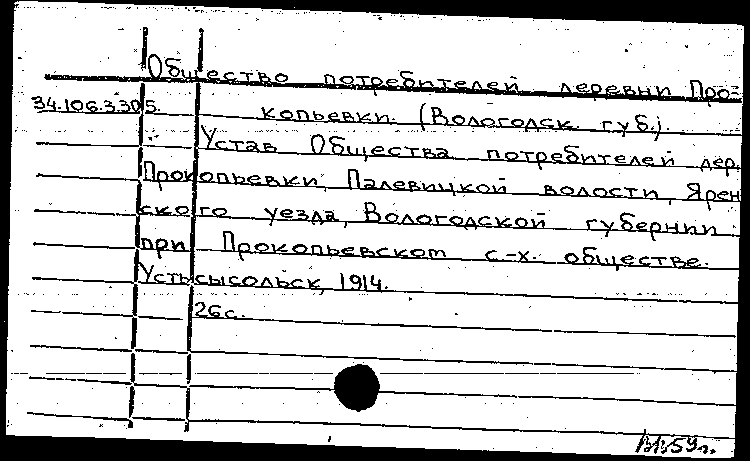 Общество потребителей деревни Про-
34.106.3.305. копьевки. (Вологодск. губ.)
Устав Общества потребителей дер.
Прокопьевки, Палевицкой волости, Ярен
ского уезда, Вологодской губернии
при Прокопьевском с-х. обществе.
Устьсысольск, 1914.
26с.